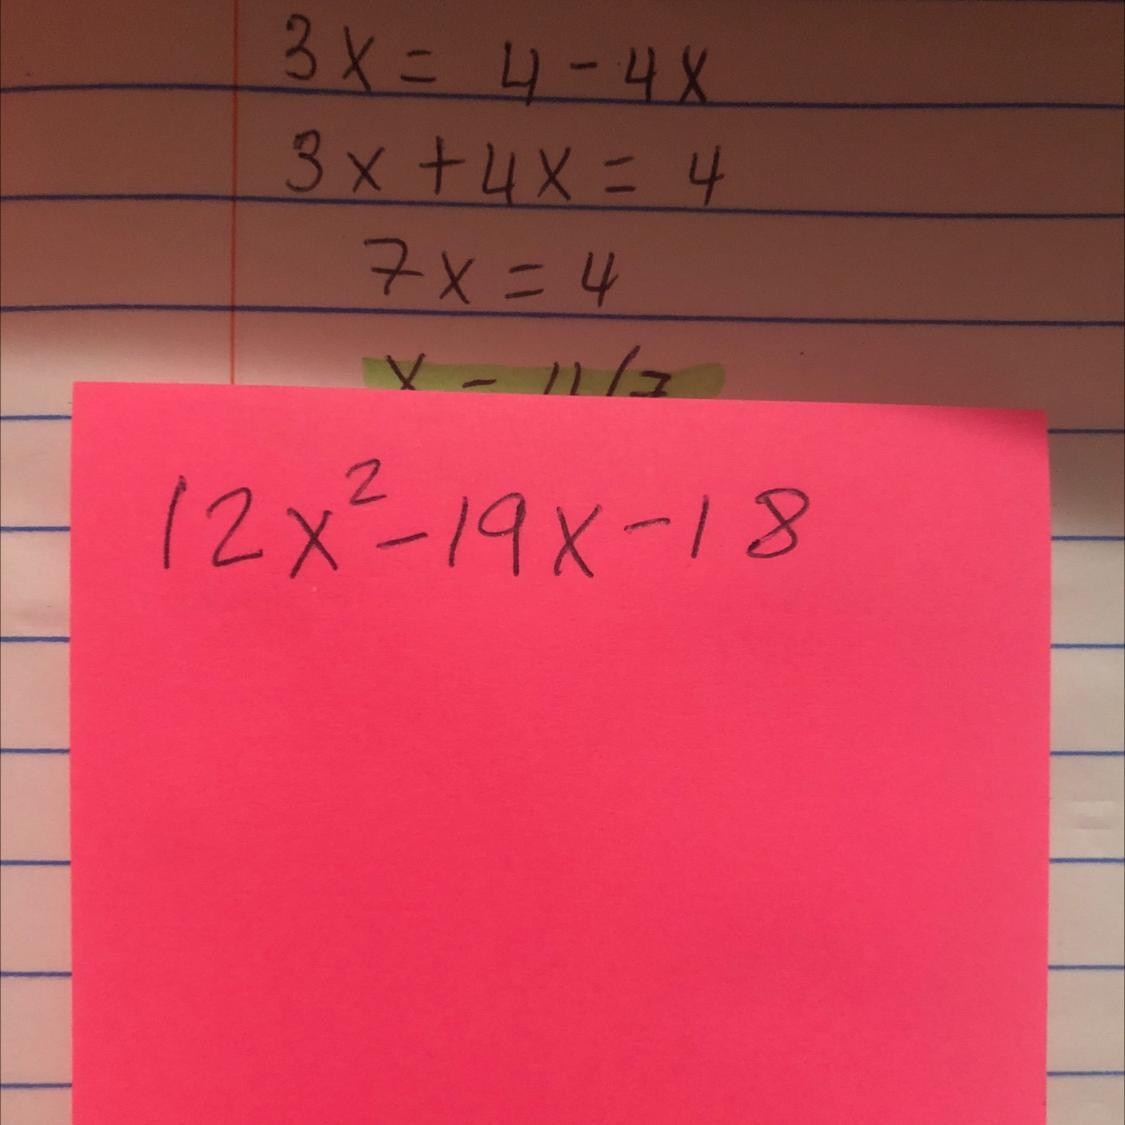 3x = 4 - 4x
3x + 4x = 4
7x = 4
x = 4/7
12x² - 19x - 18